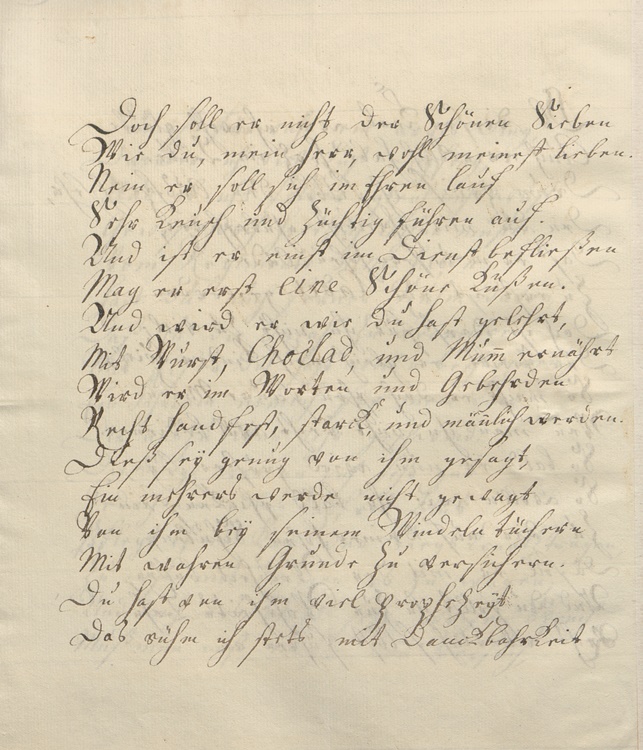 Doch soll er nicht der Schönen Sieben
Wie du, mein Herr, wohl meinest lieben.
Nein er soll sich im Ehren lauf
Sehr Keusch und züchtig führen auf.
Und ist er einst im Dienst befließen
Mag er erst eine Schöne Küßen.
Und wird er wie du hast gelehrt,
Mit Wurst, Choclad, und Mum̅ ernährt
Wird er in Worten und Gebehrden
Recht handfest, starck, und män̅lich werden.
Dieß seÿ genug von ihm gesagt,
Ein mehrers werde nicht gewagt
Von ihm beÿ seinen Windeln tüchern
Mit wahren Grunde zu versichern.
Du hast von ihm viel prophezeÿt
Das rühm ich stets mit Danckbahrkeit